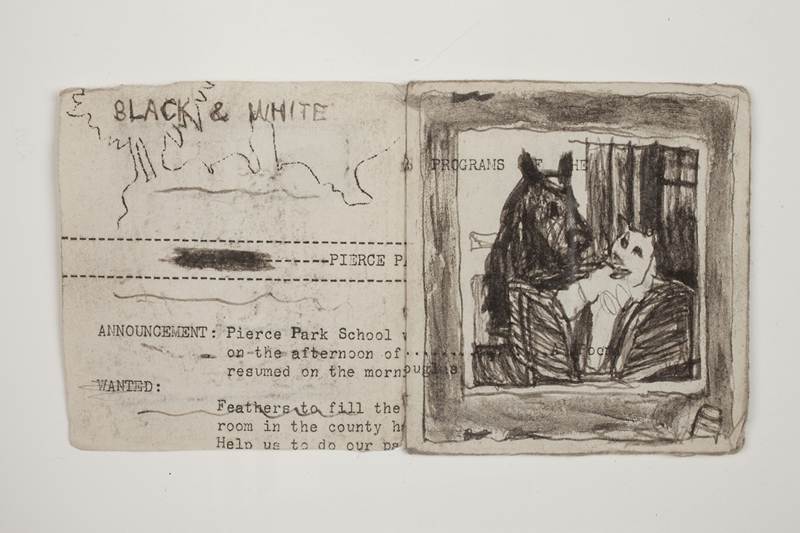 BLACK & WHITE
PROGRAMS OF THE
PIERCE PA
ANNOUNCEMENT: Pierce Park School
on the afternoon of
resumed on the morn
WANTED:
Feathers to fill the
room in the county h
Help us to do our pa